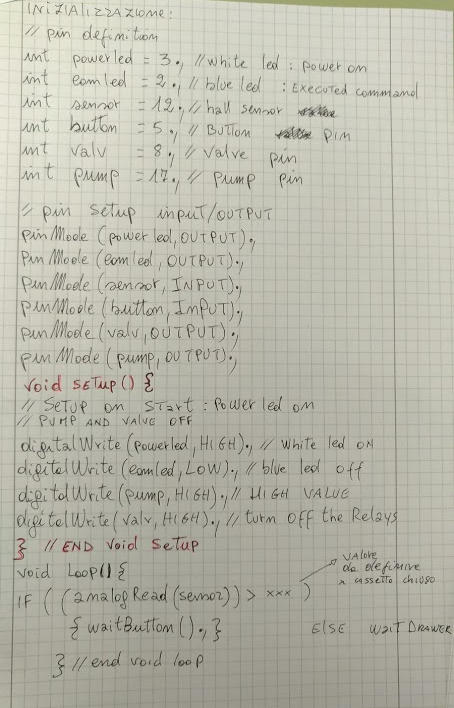 INIZIAlIZZAZIONE:
// pin definition
int powerled = 3; // white led : power on
int comled = 2; // blue led : Executed command
int sensor = 12; // hall sensor
int button = 5; // Button pin
int valv = 8; // Valve pin
int pump = 17; // pump pin
// pin setup input/OUTPUT
pinMode (powerled, OUTPUT);
pinMode (comled, OUTPUT);
pinMode (sensor, INPUT);
pinMode (button, InPUT);
pinMode (valv, OUTPUT);
pinMode (pump, OUTPUT);
void SETUP() {
// SETUP on START : Power led on
// PUMP AND VALVE OFF
digitalWrite (powerled, HIGH); // White led ON
digitalWrite (comled, LOW); // blue led off
digitalWrite (pump, HIGH); // HIGH VALUE
digitalWrite (valv, HIGH); // turn off the Relays
} // END void Setup
void Loop() {
IF ( (analogRead (sensor)) > xxx )
VALORE
da definire
a cassetto chiuso
{ waitButton(); }
ElSE WAIT DRAWER
} // end void loop